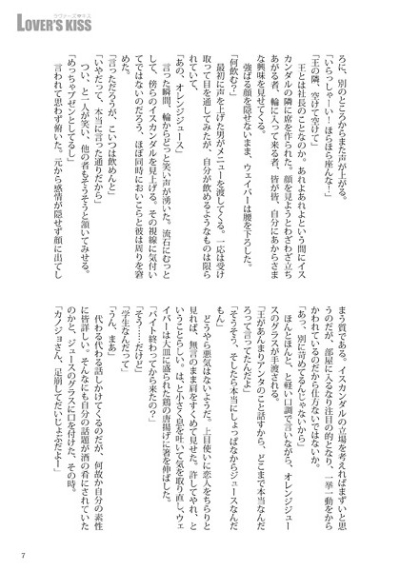 ラヴァーズ♥キス
LOVER'S KISS
ろに、別のところからまた声が上がる。
「いらっしゃーい! ほらほら座んな!」
「王の隣、空けて空けて」
王とは社長のことなのか。あれよあれよという間にイス
カンダルの隣に席を作られた。顔を見ようとわざわざ立ち
あがる者、輪に入って来る者、皆が皆、自分にあからさま
な興味を見せてくる。
強ばる顔を隠せないまま、ウェイバーは腰を下ろした。
「何飲む?」
最初に声を上げた男がメニューを渡してくる。一応は受け
取って目を通してみたが、自分が飲めるようなものは限ら
れていて、
「あの、オレンジジュース」
言った瞬間、輪からどっと笑い声が湧いた。流石にむっと
して、傍らのイスカンダルを見上げる。その視線に気付い
てではないのだろう、ほぼ同時においこらと彼は周りを窘
めた。
「言っただろうが、こいつは飲めんと」
「いやだって、本当に言った通りだから」
つい、と一人が笑い、他の者もそうそうと頷いてみせる。
「めっちゃブゼンとしてるし」
言われて思わず俯いた。元から感情が隠せず顔に出てし
まう質である。イスカンダルの立場を考えればまずいと思
うのだが、部屋に入るなり注目の的となり、一挙一動をから
かわれているのだから仕方ないではないか。
「あっ、別に苛めてるんじゃないから」
ほんとほんと、と軽い口調で言いながら、オレンジジュー
スのグラスが手渡される。
「王があんまりアンタのこと話すから、どこまで本当なんだ
ろって言ってたんだよ」
「そうそう、そしたら本当にしょっぱなからジュースなんだ
もん」
どうやら悪気はないようだ。上目使いに恋人をちらりと
見れば、無言のまま肩をすくめて見せた。許してやれ、と
いうことらしい。は、と小さく息を吐いて気を取り直し、ウェ
イバーは大皿に盛られた鶏の唐揚げに箸を伸ばした。
「バイト終わってから来たの?」
「そう……だけど」
「学生なんだって」
「うん、まあ」
代わる代わる話しかけてくるのだが、何故か自分の素性
に皆詳しい。そんなにも自分の話題が酒の肴にされていた
のかと、ジュースのグラスに口を付けた、その時。
「カノジョさん、足崩してだいじょぶだよー」
7